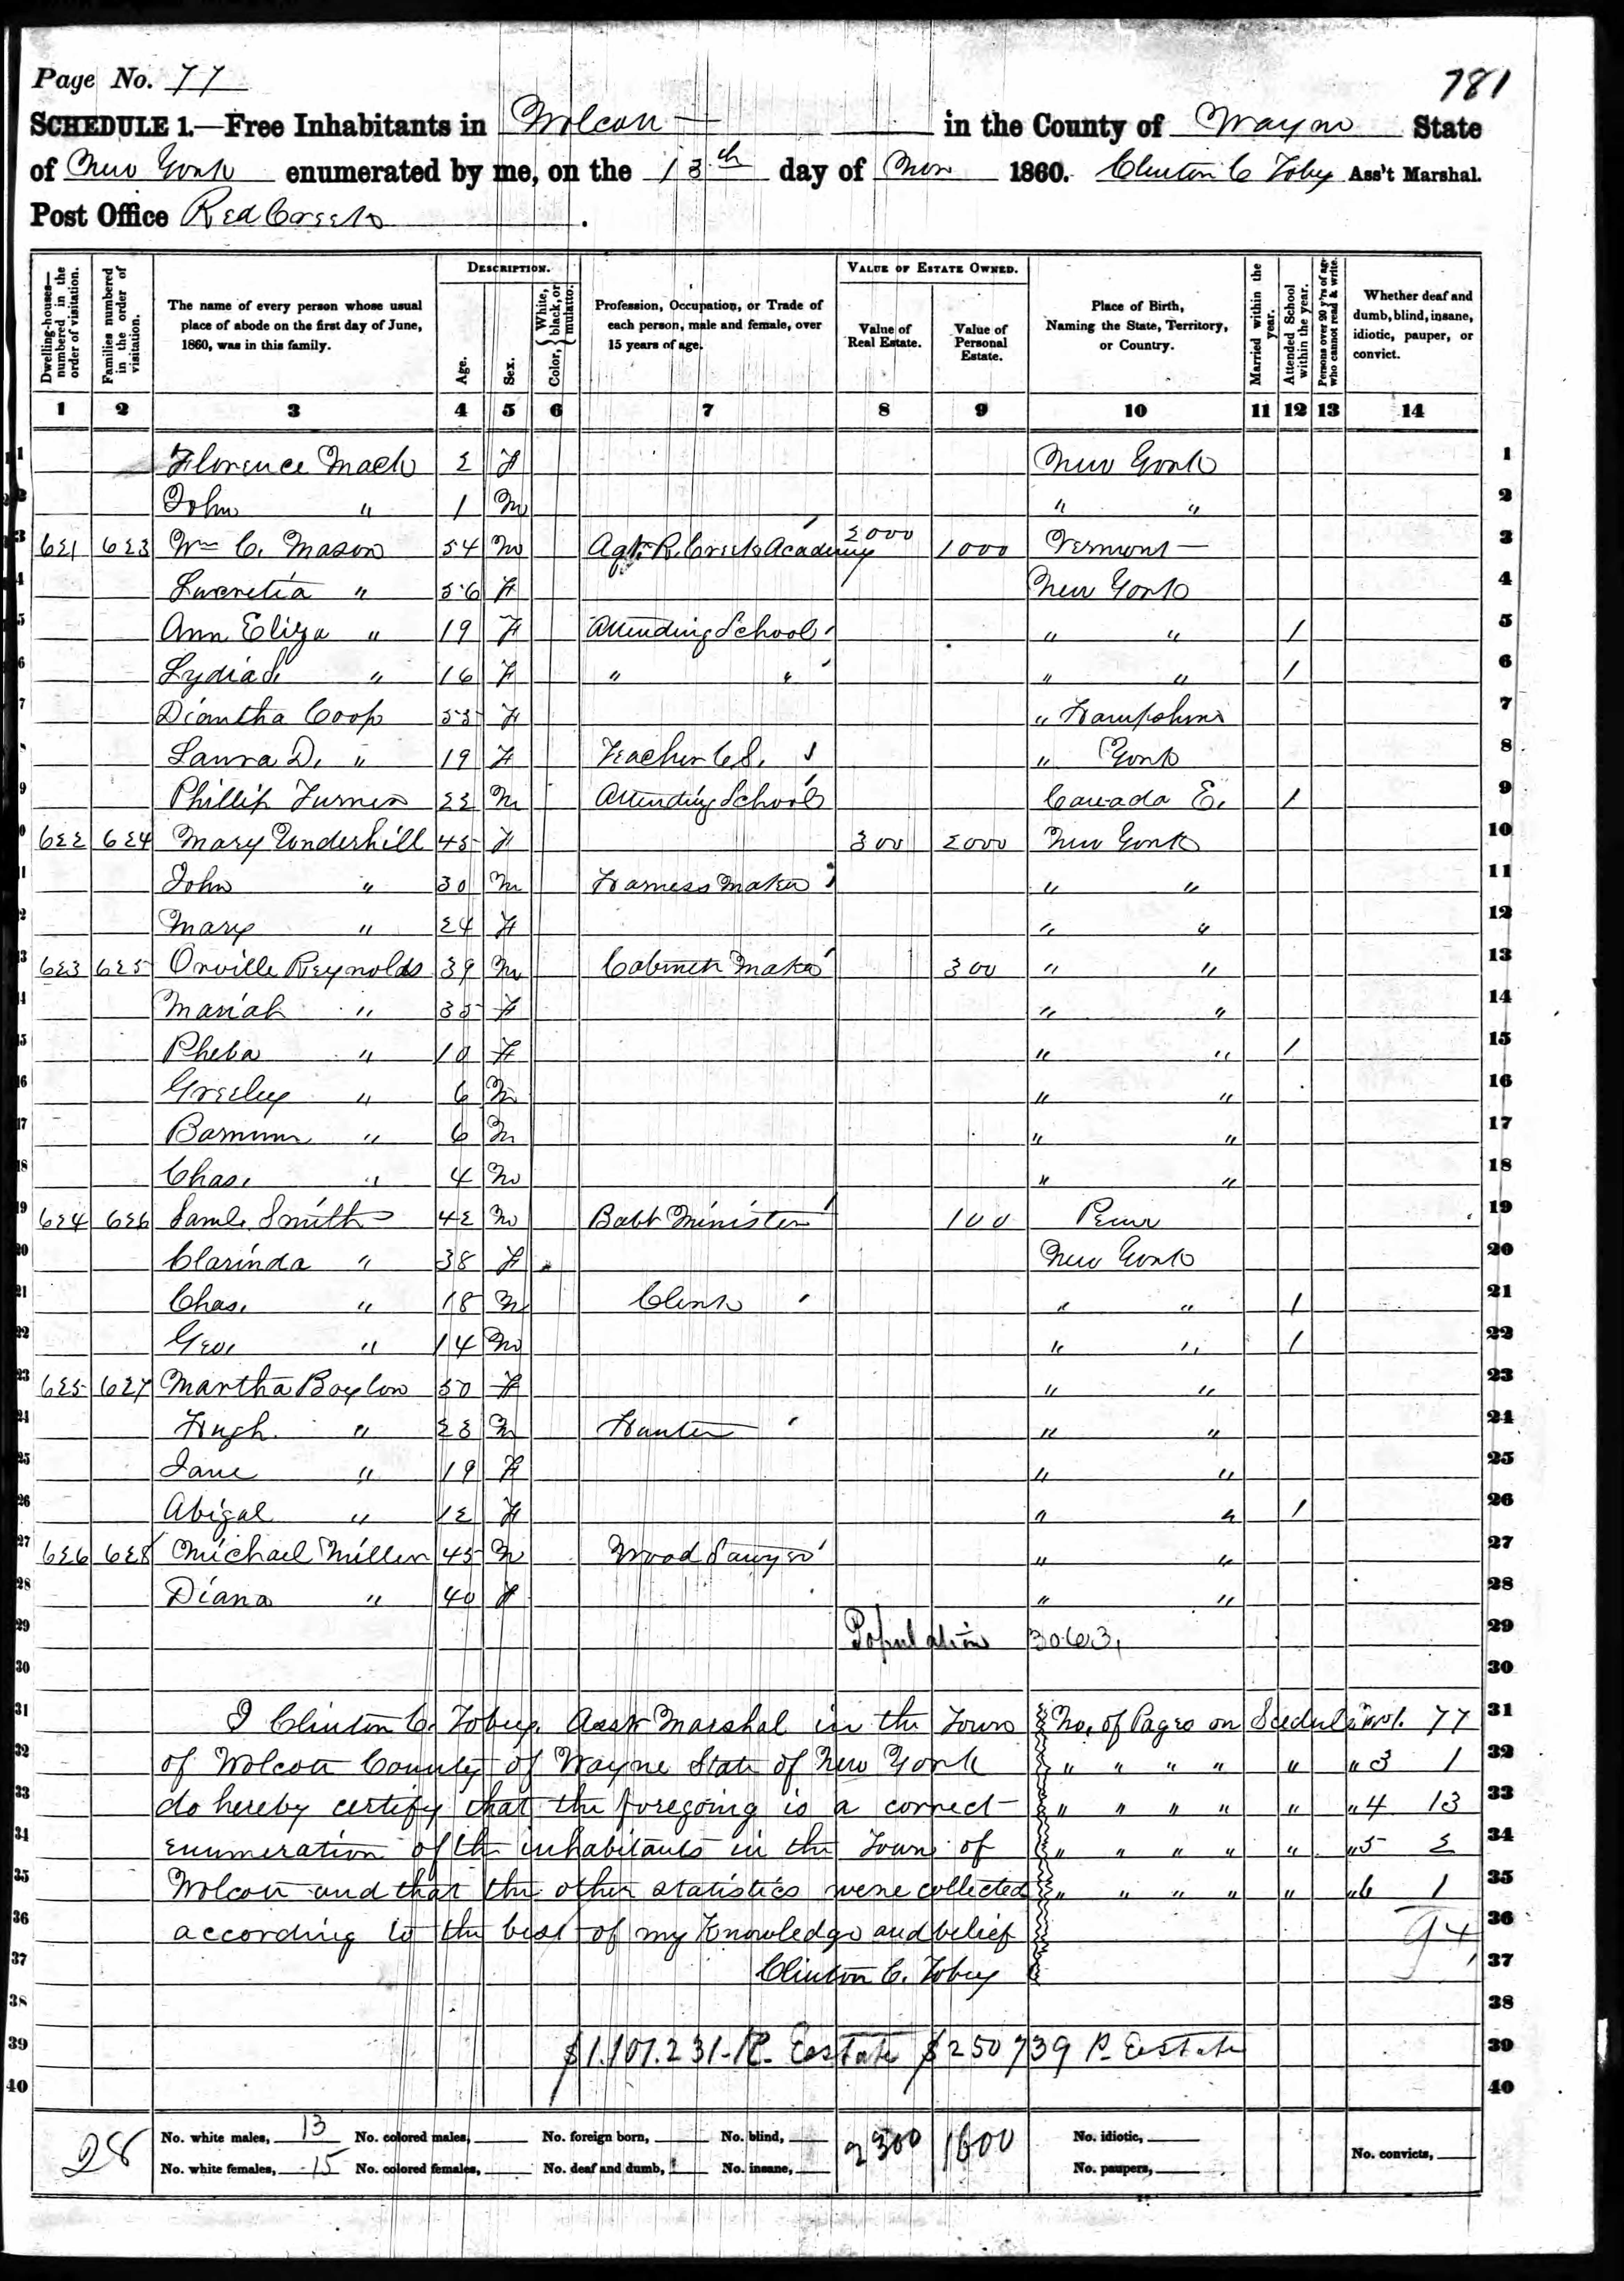 Page No. 77
781
SCHEDULE 1.—Free Inhabitants in Wolcott in the County of Wayne State
of New York enumerated by me, on the 13th day of Nov 1860. Clinton C Toby Ass't Marshal.
Post Office Red Creek.
DESCRIPTION. VALUE OF ESTATE OWNED.
Dwelling-houses—numbered in the order of visitation.
Families numbered in the order of visitation.
The name of every person whose usual place of abode on the first day of June, 1860, was in this family.
Age.
Sex.
Color, { White, black, or mulatto.
Profession, Occupation, or Trade of each person, male and female, over 15 years of age.
Value of Real Estate.
Value of Personal Estate.
Place of Birth, Naming the State, Territory, or Country.
Married within the year.
Attended School within the year.
Persons over 20 y'rs of age who cannot read & write.
Whether deaf and dumb, blind, insane, idiotic, pauper, or convict.
1 2 3 4 5 6 7 8 9 10 11 12 13 14
1 Florence Mack 2 F New York 1
2 John " 1 M " " 2
3 621 623 Wm C. Mason 54 M Agt. R. Creek Academy 2000 1000 Vermont 3
4 Lucretia " 56 F New York 4
5 Ann Eliza " 19 F Attending School " " / 5
6 Lydia " 16 F " " " " / 6
7 Diantha Coop 55 F " Hampshire 7
8 Laura D. " 19 F Teacher C.S. " York 8
9 Phillip Turner 22 M Attending School Canada E. / 9
10 622 624 Mary Underhill 45 F 300 2000 New York 10
11 John " 30 M Harness Maker " " 11
12 Mary " 24 F " " 12
13 623 625 Orville Reynolds 39 M Cabinett Maker 300 " " 13
14 Mariah " 35 F " " 14
15 Pheba " 10 F " " / 15
16 Greeley " 6 M " " 16
17 Barnum " 6 M " " 17
18 Chas. " 4 M " " 18
19 624 626 Saml. Smith 42 M Babt Minister 100 Penn 19
20 Clarinda " 38 F New York 20
21 Chas. " 18 M Clerk " " / 21
22 Geo. " 14 M " " / 22
23 625 627 Martha Boylon 50 F " " 23
24 Hugh " 23 M Hunter " " 24
25 Jane " 19 F " " 25
26 Abigal " 12 F " " / 26
27 626 628 Michael Miller 45 M Wood Sawyer " " 27
28 Diana " 40 F " " 28
29 Population 3063, 29
30 30
31 I Clinton C. Tobey. Asst Marshal in the Town No. of Pages on Scedule No 1. 77 31
32 of Wolcott County of Wayne State of New York " " " " " " 3 1 32
33 do hereby certify that the foregoing is a correct " " " " " " 4 13 33
34 enumeration of the inhabitants in the Town of " " " " " " 5 2 34
35 Wolcott and that the other statistics were collected " " " " " " 6 1 35
36 according to the best of my Knowledge and belief 94 36
37 Clinton C. Tobey 37
38 38
39 $1.101.231-R. Eestate $250739 P. Eestate 39
40 40
28 No. white males, 13 No. colored males, No. foreign born, No. blind, 2300 1600 No. idiotic,
No. white females, 15 No. colored females, No. deaf and dumb, No. insane, No. paupers, No. convicts,